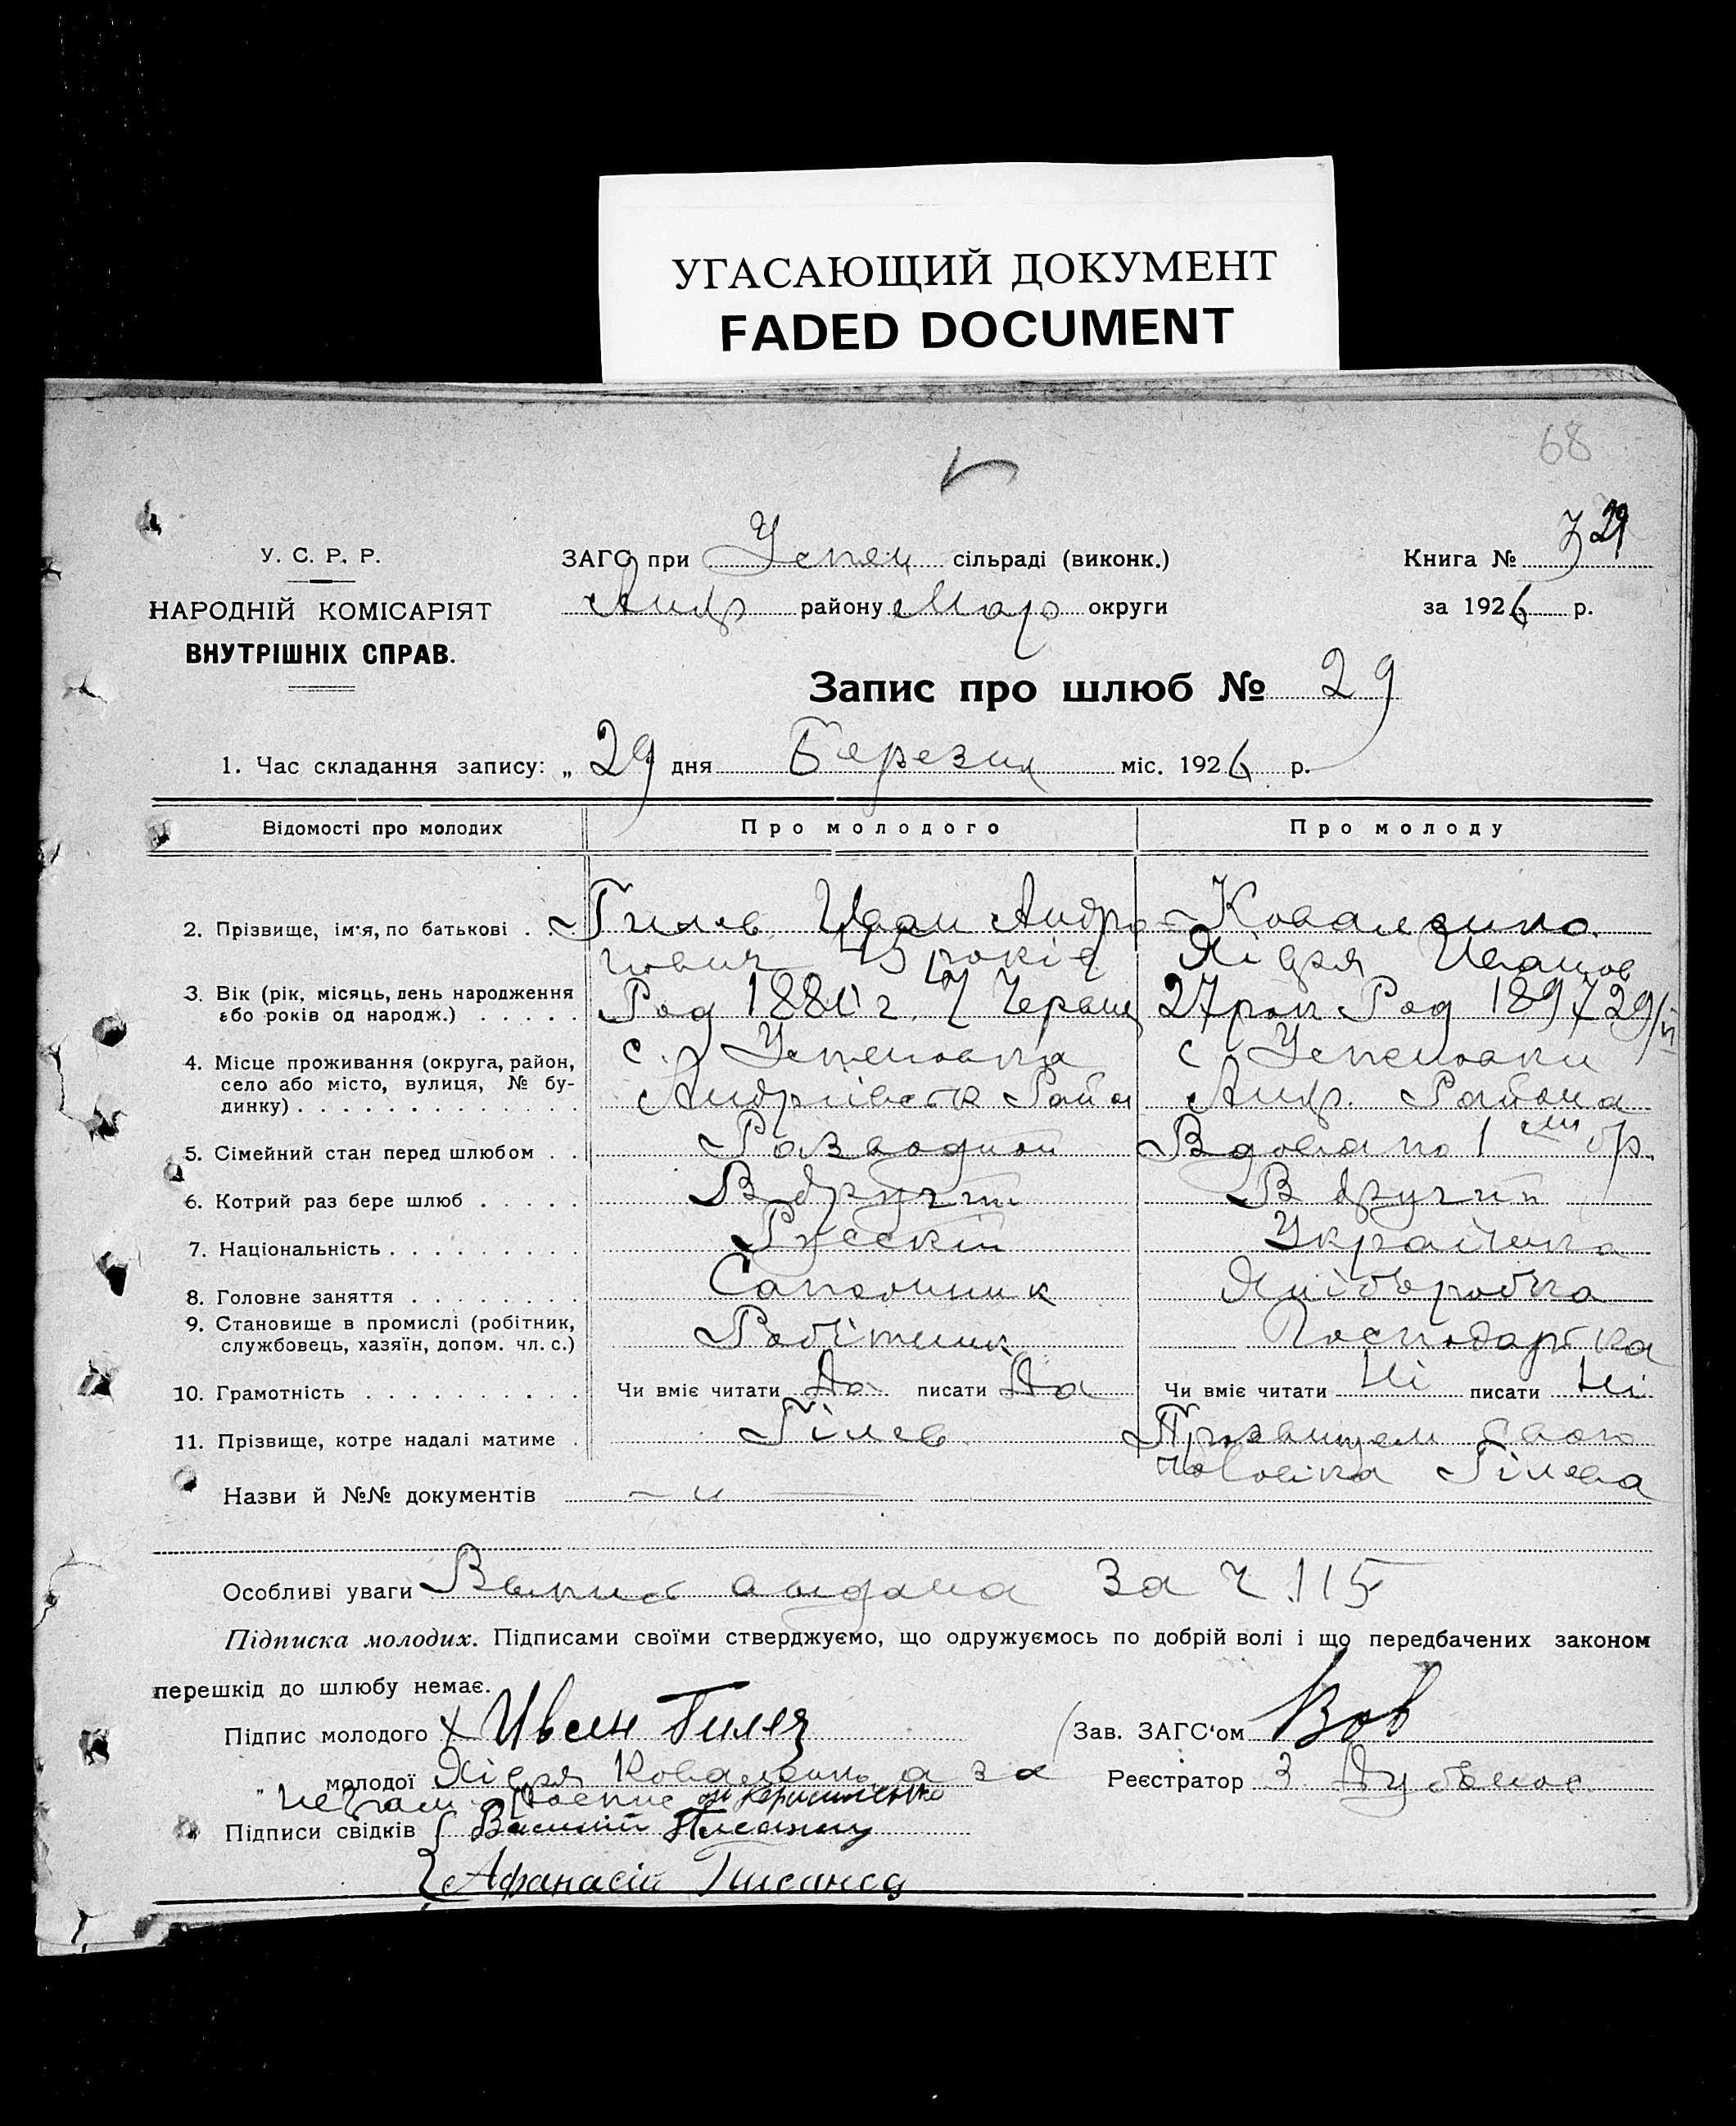 УГАСАЮЩИЙ ДОКУМЕНТ
FADED DOCUMENT
68
У. С. Р. Р.
НАРОДНІЙ КОМІСАРІЯТ
ВНУТРІШНІХ СПРАВ.
ЗАГС при Успен сільраді (виконк.)
Андр району Мар округи
Книга № 29
за 1926 р.
Запис про шлюб № 29
1. Час складання запису: „ 29 дня Березня міс. 1926 р.
Відомості про молодих Про молодого Про молоду
2. Прізвище, ім'я, по батькові . . . Гилев Иван Андре Коваленко
євич 45 років Лідія Иванов
3. Вік (рік, місяць, день народження
або років од народж.) . . . . . Род 1881 г. 27 рок Род 1897 29/
4. Місце проживання (округа, район,
село або місто, вулиця, № бу-
динку) . . . . . . . . . . . . . с. Успеновка
Андріївськ Район
с Успеновки
Андр. Района
5. Сімейний стан перед шлюбом . . Разводной Вдова по 1 му бр.
6. Котрий раз бере шлюб . . . . . В другий В другий
7. Національність . . . . . . . . . Русский Українка
8. Головне заняття . . . . . . . . Сапожник Хліборобка
9. Становище в промислі (робітник,
службовець, хазяїн, допом. чл. с.) Робітник Господарка
10. Грамотність . . . . . . . . . . Чи вміє читати Да писати Да Чи вміє читати Ні писати Ні
11. Прізвище, котре надалі матиме . Гілев Призвищем свого
чоловіка Гілева
Назви й №№ документів — " —
Особливі уваги Випис видана за ч. 115
Підписка молодих. Підписами своїми стверджуємо, що одружуємось по добрій волі і що передбачених законом
перешкід до шлюбу немає.
Підпис молодого Иван Гилев Зав. ЗАГС'ом Вов
" молодої Лідія Коваленко а за Реєстратор З
Підписи свідків Василий
Афанасій